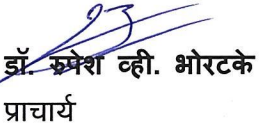 डॉ. रुपेश व्ही. भोरटके
प्राचार्य